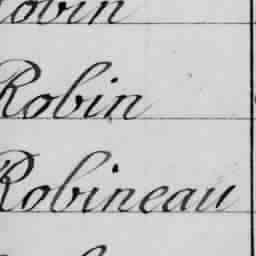 Robin
Robin
Robineau